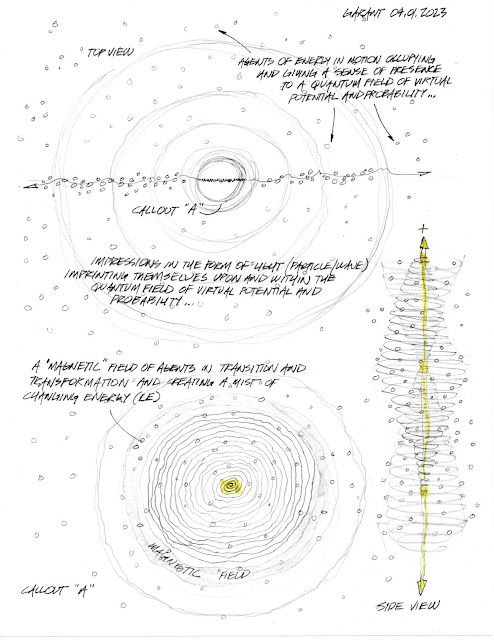 GARANT 04.01.2023
TOP VIEW
AGENTS OF ENERGY IN MOTION OCCUPYING
AND GIVING A SENSE OF PRESENCE
TO A QUANTUM FIELD OF VIRTUAL
POTENTIAL AND PROBABILITY...
CALLOUT "A"
IMPRESSIONS IN THE FORM OF LIGHT (PARTICLE/WAVE)
IMPRINTING THEMSELVES UPON AND WITHIN THE
QUANTUM FIELD OF VIRTUAL POTENTIAL AND
PROBABILITY...
+
A "MAGNETIC" FIELD OF AGENTS IN TRANSITION AND
TRANSFORMATION AND CREATING A MIST OF
CHANGING ENERGY (IE)
MAGNETIC FIELD
CALLOUT "A"
-
SIDE VIEW